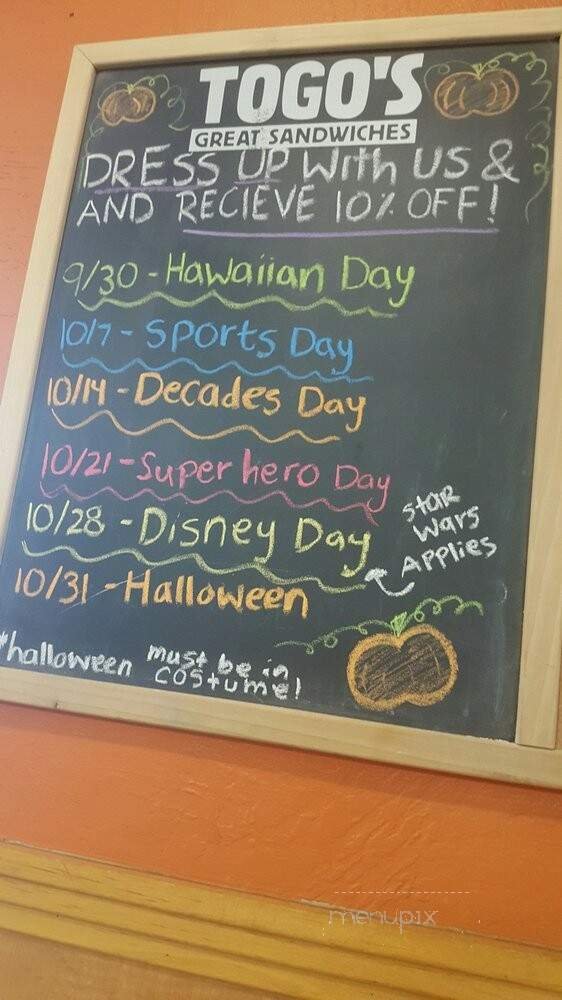 TOGO'S
GREAT SANDWICHES
DRESS UP With US &
AND RECIEVE 10% OFF!
9/30 - Hawaiian Day
10/7 - Sports Day
10/14 - Decades Day
10/21 - Super hero Day
10/28 - Disney Day
Star
Wars
Applies
10/31 - Halloween
*halloween must be in
costume!
menupix